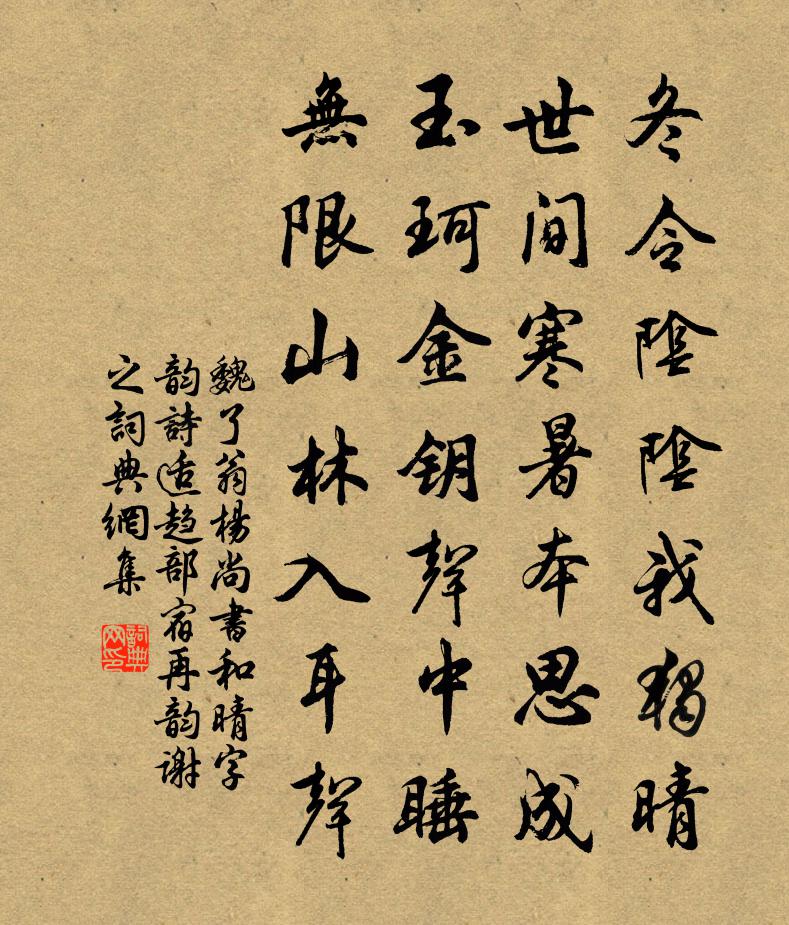 冬令陰陰我獨晴
世間寒暑本思成
玉珂金钥聲中睡
無限山林入耳聲
魏了翁楊尚書和晴字
韵詩适趋部宿再韵谢
之詞典網集
詞典
网印